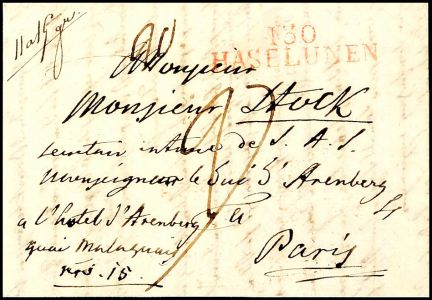 130
HASELUNEN
A Monsieur
Monsieur Stock
secretair intime de S. A. S.
Monseigneur le Duc d'Arenberg
a l'hotel d'Arenberg a
quai Malaquais
nro. 15.
Paris